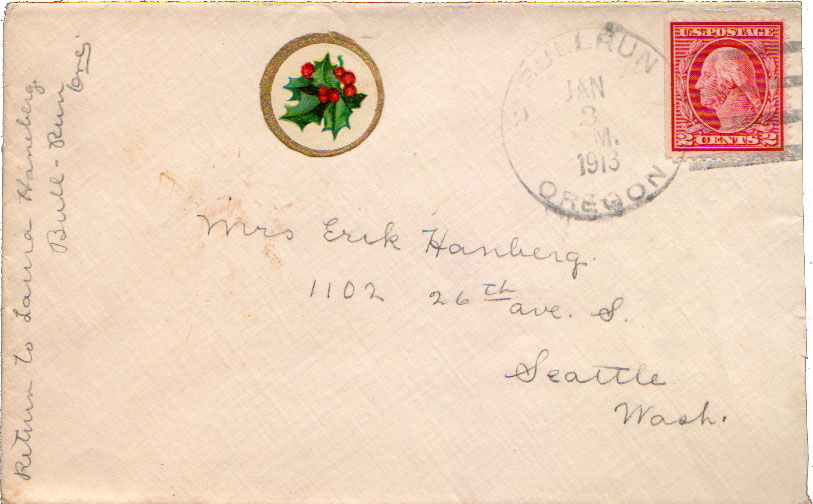 Return to Laura Haneberg
Bull-Run
Ore.
BULL RUN
JAN
3
M.
1913
OREGON
U.S. POSTAGE
2 CENTS 2
Mrs Erik Hanberg.
1102 26th ave. S.
Seattle
Wash.